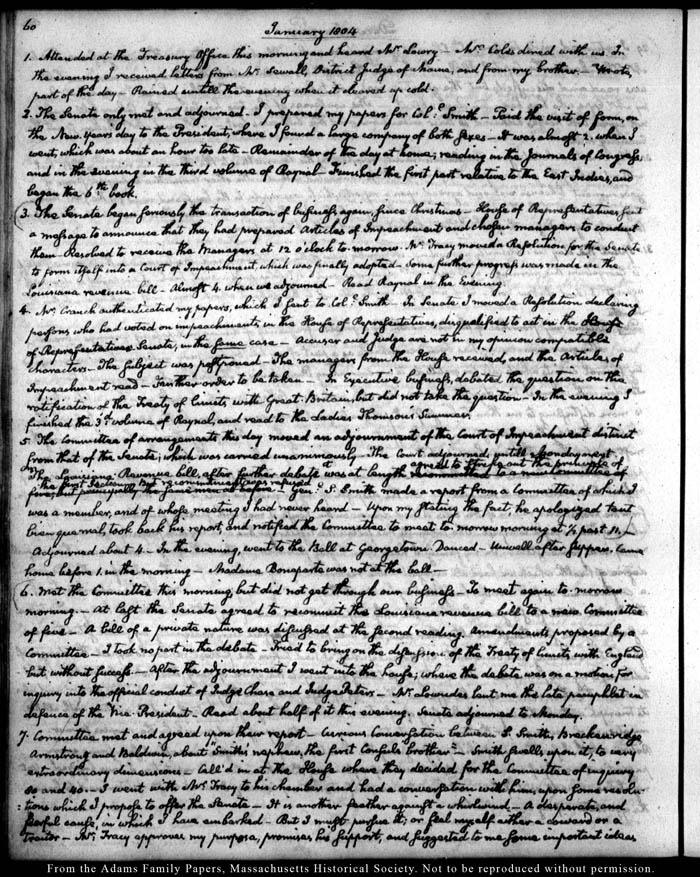 60
January 1804
1. Attended at the Treasury Office this morning and heard Mr. Lowry — Mrs. Coles dined with us. In
the evening I received letters from Mr. Sewall, District Judge of Maine, and from my brother. — Wrote,
part of the day — Rained untill the evening when it cleared up cold.
2. The Senate only met and adjourned — I prepared my papers for Coll: Smith — Paid the visit of form, on
the New-Years day to the President, where I found a large company of both sexes — It was almost 2. when I
went, which was about an hour too late — Remainder of the day at home, reading in the Journals of Congress,
and in the evening in the third volume of Raynal — Finished the first part relative to the East Indies, and
began the 6th. book.
3. The Senate began seriously the transaction of business again since Christmas — House of Representatives sent
a message to announce that they had prepared Articles of Impeachment and chosen managers to conduct
them Resolved to receive the Managers at 12 o'clock to-morrow. Mr. Tracy moved a Resolution for the Senate
to form itself into a Court of Impeachment, which was finally adopted — Some further progress was made in the
Louisiana revenue bill — Almost 4. when we adjourned — Read Raynal in the Evening.
4. Mr. Cranch authenticated my papers, which I sent to Col: Smith — In Senate I moved a Resolution declaring
persons who had voted on impeachments, in the House of Representatives, disqualified to act in the House
of Representatives Senate, in the same case — Accuser and Judge are not in my opinion compatible
characters — The subject was postponed — The managers from the House received, and the Articles of
Impeachment read — Further order to be taken — In Executive business, debated the question on the
ratification of the Treaty of limits with Great-Britain, but did not take the question — In the evening I
finished the 3d. volume of Raynal, and read to the ladies Thomson's Summer.
5. The Committee of arrangements this day moved an adjournment of the Court of Impeachment distinct
from that of the Senate; which was carried unanimously. The Court adjourned untill Monday next
The Louisiana Revenue bill, after further debate was at length recommitted to a committee of
agreed to strike out the principle of
the first section. But recommitment was refused
five; but principally the same men as before — Genl: S. Smith made a report from a Committee of which I
was a member, and of whose meeting I had never heard — Upon my stating the fact, he apologized tant
bien que mal, took back his report, and notified the Committee to meet to-morrow morning at ½ past 11. —
Adjourned about 4 — In the evening, went to the Ball at Georgetown. Danced — Unwell after supper. Came
home before 1. in the morning — Madame Bonaparte was not at the ball —
6. Met the Committee this morning, but did not get through our business — To meet again to-morrow
morning — At last the Senate agreed to recommit the Louisiana revenue bill to a new Committee
of five — A bill of a private nature was discussed at the second reading. Amendments proposed by a
Committee — I took no part in the debate — Tried to bring on the discussion of the Treaty of limits with England
but without success — After the adjournment I went into the house; where the debate was on a motion for
inquiry into the official conduct of Judge Chase and Judge Peters — Mr. Lowndes lent me the late pamphlet in
defence of the Vice-President — Read about half of it this evening. Senate adjourned to Monday.
7. Committee met and agreed upon their report — Curious Conversation between S. Smith, Breckenridge
Armstrong and Baldwin, about Smith's nephew, the first Consuls brother — Smith swells upon it, to very
extraordinary dimensions — Call'd in at the House where they decided for the Committee of inquiry
80 and 40. — I went with Mr. Tracy to his chamber and had a conversation with him, upon some resolu-
tions which I propose to offer the Senate — It is another feather against a whirlwind — A desperate, and
fearful cause, in which I have embarked — But I must pursue it, or feel myself either a coward or a
traitor — Mr. Tracy approves my purpose, promises his support, and suggested to me some important ideas
From the Adams Family Papers, Massachusetts Historical Society. Not to be reproduced without permission.